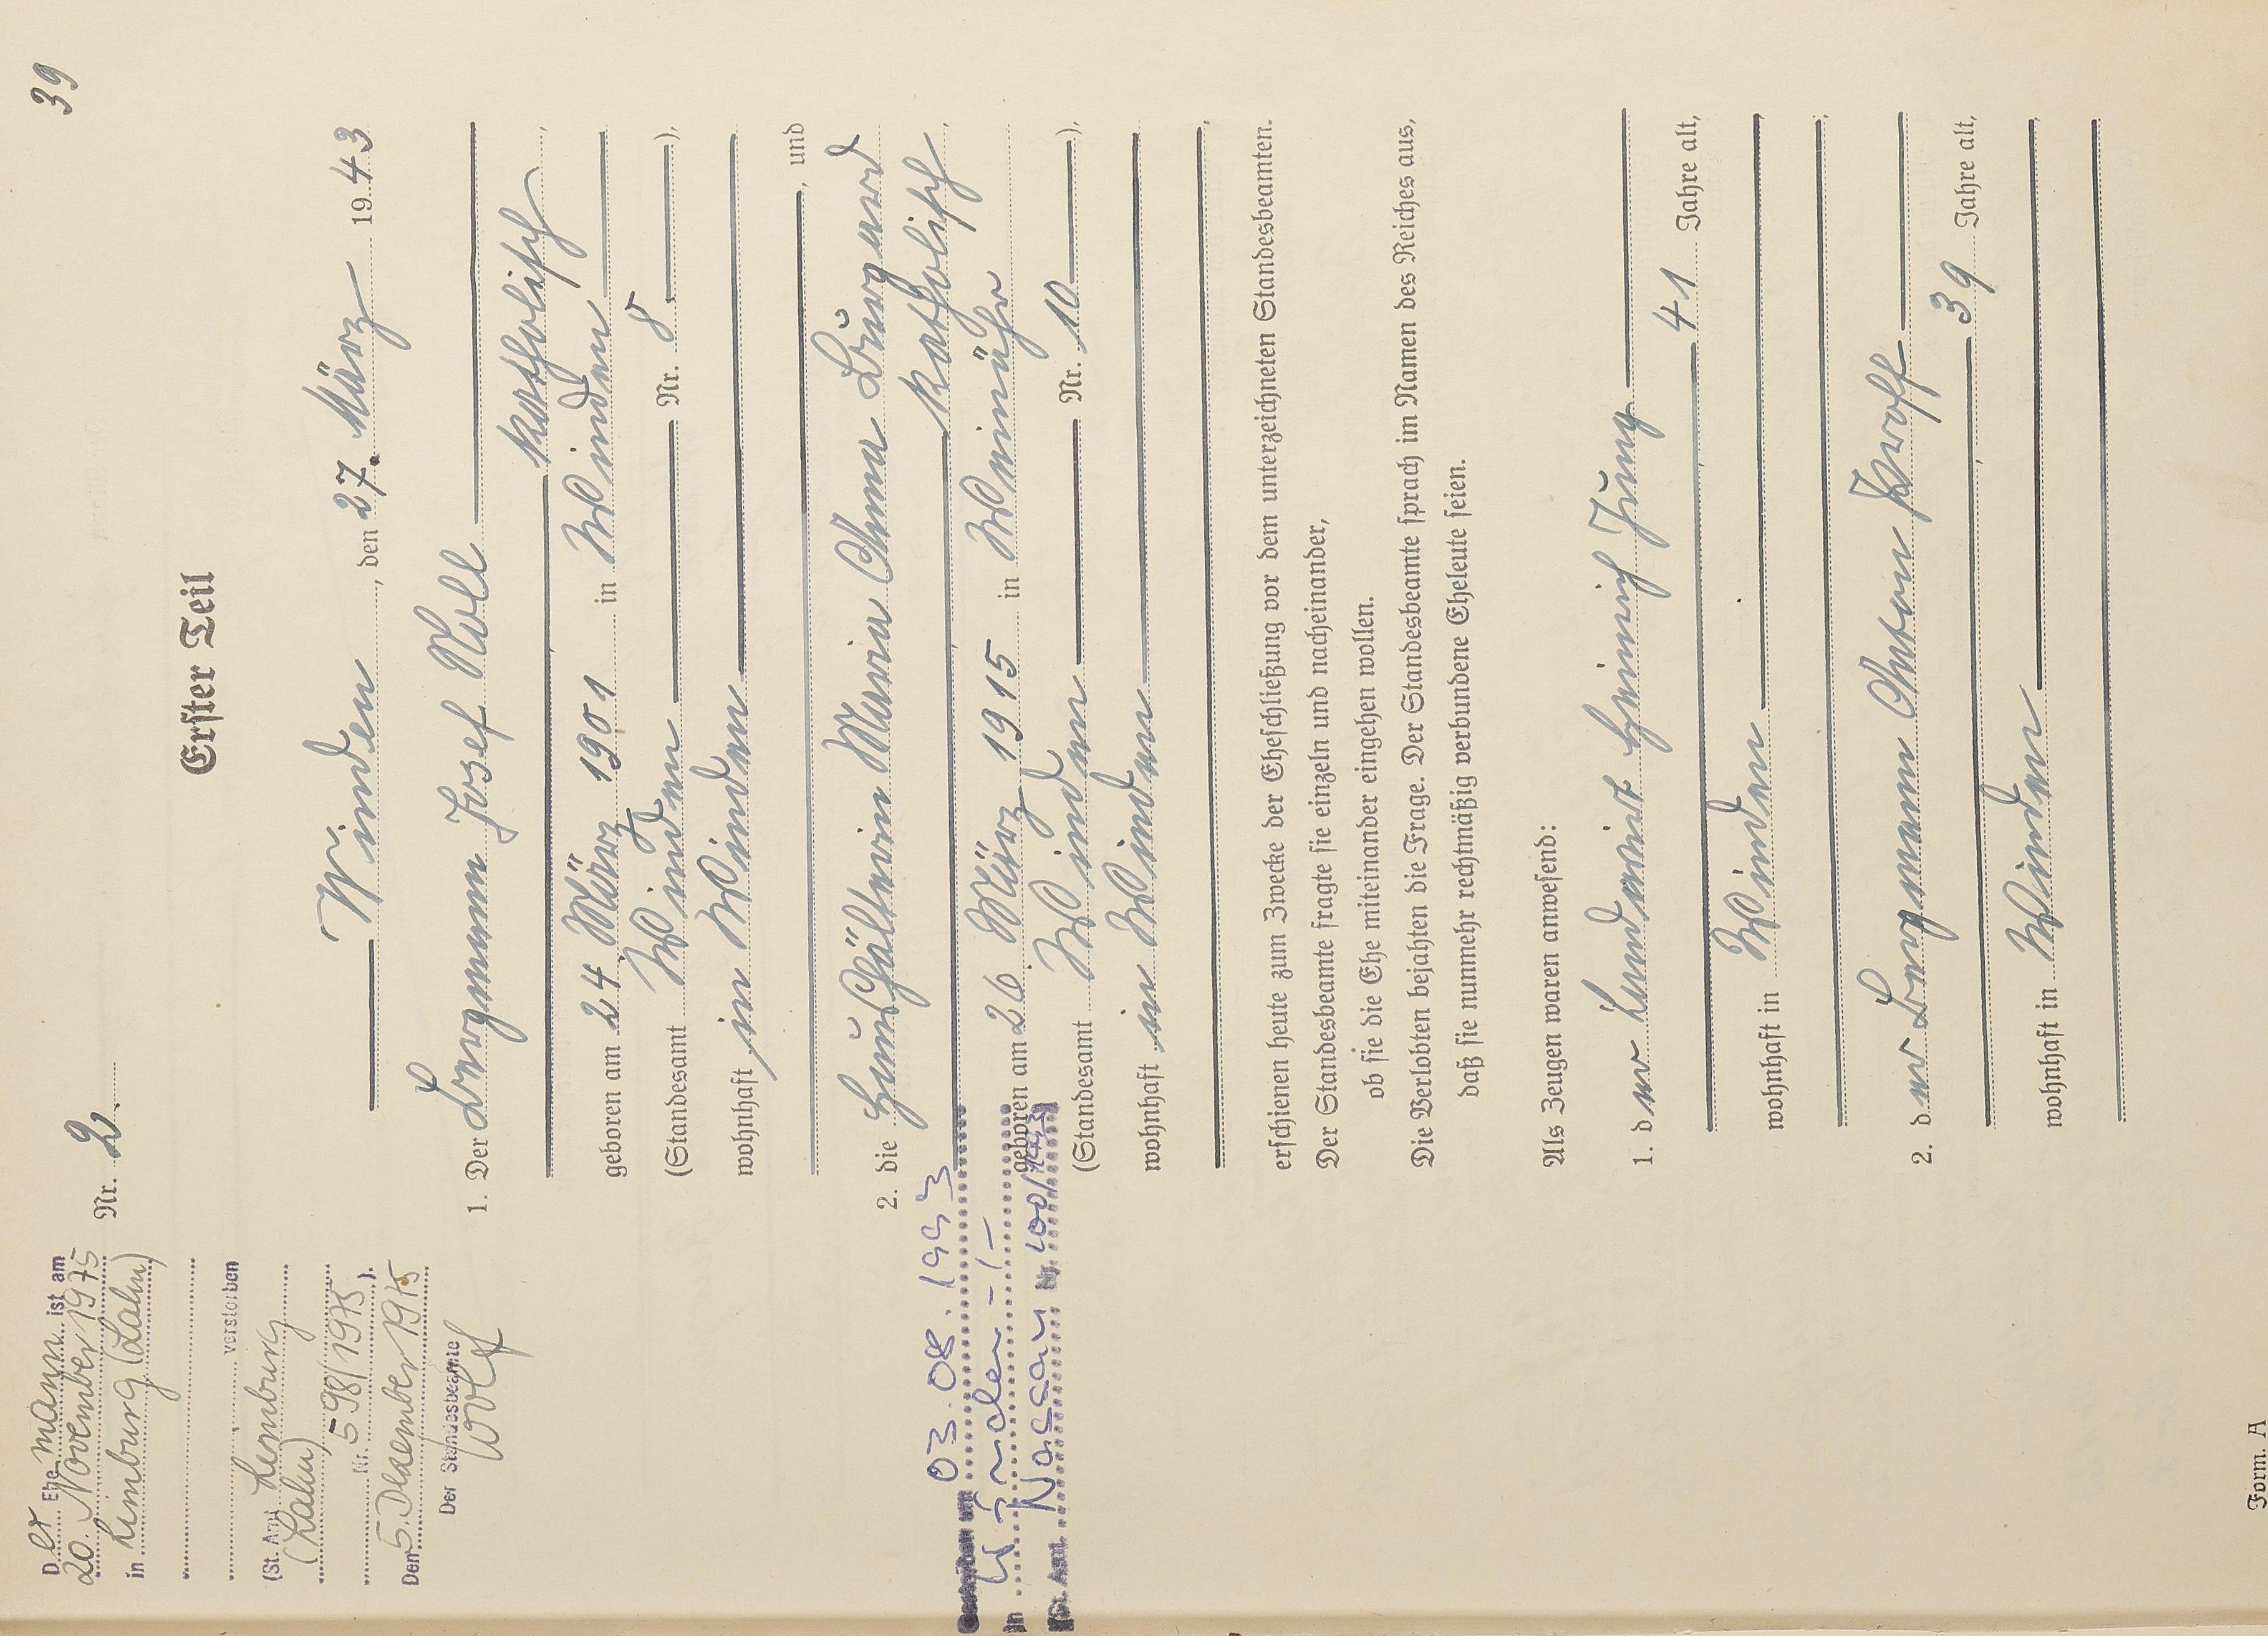 39
Nr. 2.
Erster Teil
Winden, den 27. März 1943
1. Der Bergmann Josef Noll
katholisch,
geboren am 24. März 1901 in Winden
(Standesamt Winden Nr. 8),
wohnhaft in Winden
, und
2. die Haushälterin Maria Anna Burgard
katholisch,
geboren am 26. März 1915 in Weinähr
(Standesamt Winden Nr. 10),
wohnhaft in Winden
,
erschienen heute zum Zwecke der Eheschließung vor dem unterzeichneten Standesbeamten.
Der Standesbeamte fragte sie einzeln und nacheinander,
ob sie die Ehe miteinander eingehen wollen.
Die Verlobten bejahten die Frage. Der Standesbeamte sprach im Namen des Reiches aus,
daß sie nunmehr rechtmäßig verbundene Eheleute seien.
Als Zeugen waren anwesend:
1. der Landwirt Heinrich Jung
41 Jahre alt,
wohnhaft in Winden,
,
2. der Bergmann Anton
39 Jahre alt,
wohnhaft in Winden,
Der Ehemann ist am
20. November 1975
in Limburg (Lahn)
verstorben
(St. Amt Limburg
(Lahn)
Nr. 598/1975).
Den 5. Dezember 1975
Der Standesbeamte
Wolf
03.08.1993
in Winden -/-
Nassau Nr. 100/1993
Form. A